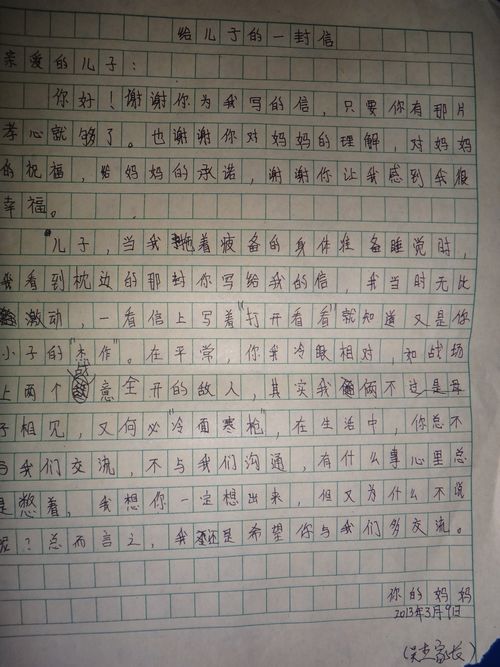 给儿子的一封信
亲爱的儿子:
你好!谢谢你为我写的信,只要你有那片
孝心就够了。也谢谢你对妈妈的理解,对妈妈
的祝福,给妈妈的承诺,谢谢你让我感到我很
幸福。
儿子,当我拖着疲备的身体准备睡觉时,
我看到枕边的那封你写给我的信,我当时无比
激动,一看信上写着"打开看看"就知道又是你
小子的"杰作"。在平常,你我冷眼相对,如战场
上两个战意全开的敌人,其实我俩不过是母
子相见,又何必"冷面寒枪",在生活中,你总不
与我们交流,不与我们沟通,有什么事心里总
是憋着,我想你一定想出来,但又为什么不说
呢?总而言之,我还是希望你与我们多交流。
你的妈妈
2013年3月9日
家长)